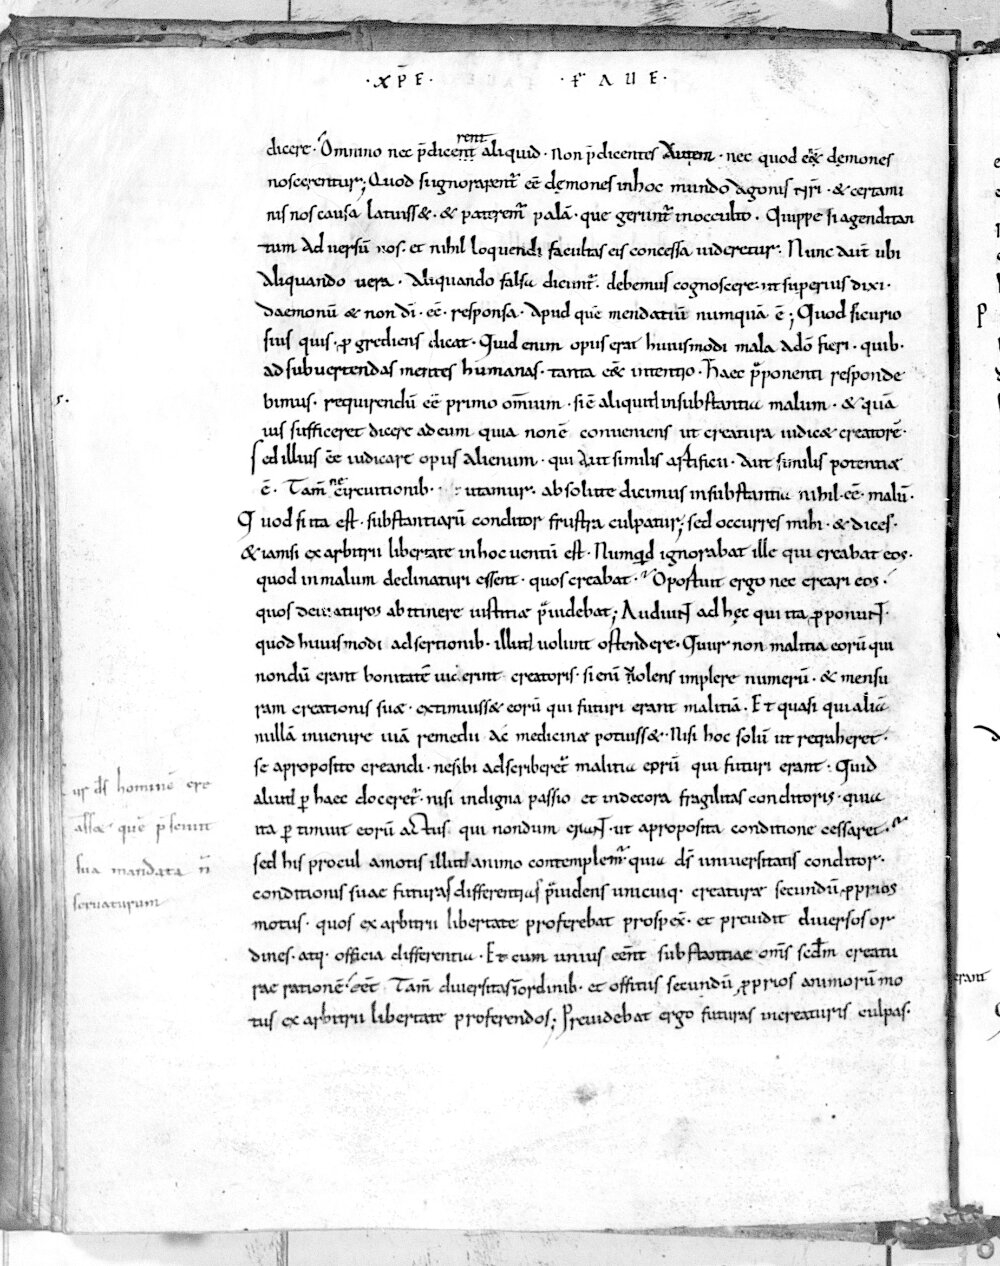 ·XP̄E· ·FAUE·
dicere· Omnino nec p̄dicerent aliquid· Non p̄dicentes autem· nec quod eēt demones
noscerentur; Quod si ignorarent᷑ eē demones in hoc mundo agonis nr̄i· & certami
nis nos causa latuiss&· & paterem᷑ palā· que gerunt᷑ in occulto· Quippe si agendi tan
tum adversū nos· et nihil loquendi facultas eis concessa uideretur· Nunc aut̄ ubi
aliquando uera· aliquando falsa dicunt᷑· debemus cognoscere· ut superius dixi·
daemonū & non dī· eē· responsa· apud quē mendatiū numquā ē; Quod si curio
sius quis· progrediens dicat· Quid enim opus erat huiusmodi mala a dō fieri· quib·
ad subuertendas mentes humanas· tanta eēt intentio· Haec p̄ponenti responde
bimus· requirendū eē primo om̄ium· si ē aliquid in substantia malum· & quā
uis sufficeret dicere ad eum quia non ē conueniens ut creatura iudic& creatorē·
sed illius eē iudicare opus alienum· qui aut similis artificii· aut similis potentiae
ē· Tam̄ ne circuitionib· utamur· absolute dicimus in substantia nihil· eē· malū·
Quod si ita est· substantiarū conditor frustra culpatur; sed occurres mihi· & dices·
&iamsi ex arbitrii libertate in hoc uentū est· Numquid ignorabat ille qui creabat eos·
quod in malum declinaturi essent· quos creabat· Oportuit ergo nec creari eos·
quos deuiaturos ab itinere iustitiae p̄uidebat; Audiunt ad hęc qui ita proponunt·
quod huiusmodi adsertionib· illud uolunt ostendere· Quur non malitia eorū qui
nondū erant bonitatē uicerint creatoris· si enī uolens implere numerū· & mensu
ram creationis suae· extimuiss& eorū qui futuri erant malitiā· Et quasi qui aliā
nullā inuenire uiā remedii ac medicinae potuiss&· Nisi hoc solū ut retraheret·
se a proposito creandi· ne sibi adscriberet᷑ malitia eorū qui futuri erant· Quid
aliud per haec doceret᷑· nisi indigna passio et indecora fragilitas conditoris· quia
ita pertimuit eorū actus qui nondum erant· ut a proposita conditione cessaret·
sed his procul amotis illud animo contemplem᷑ quia dr̄ uniuersitatis conditor·
conditionis suae futuras differentias p̄uidens unicuiq· creaturae secundū proprios
motus· quos ex arbitrii libertate proferebat prospex̄· et preuidit diuersos or
dines· atq· officia differentia· Et cum unius eēnt substantiae om̄s scdm creatu
rae rationē· eēt Tam̄ diuersitas ordinib· et offitiis secundū proprios animorū mo
tus ex arbitrii libertate proferendos; Preuidebat ergo futuras in creaturis culpas·
ur ds̄ hominē cre
ass& quē p̄sciuit
sua mandata n̄
seruaturum